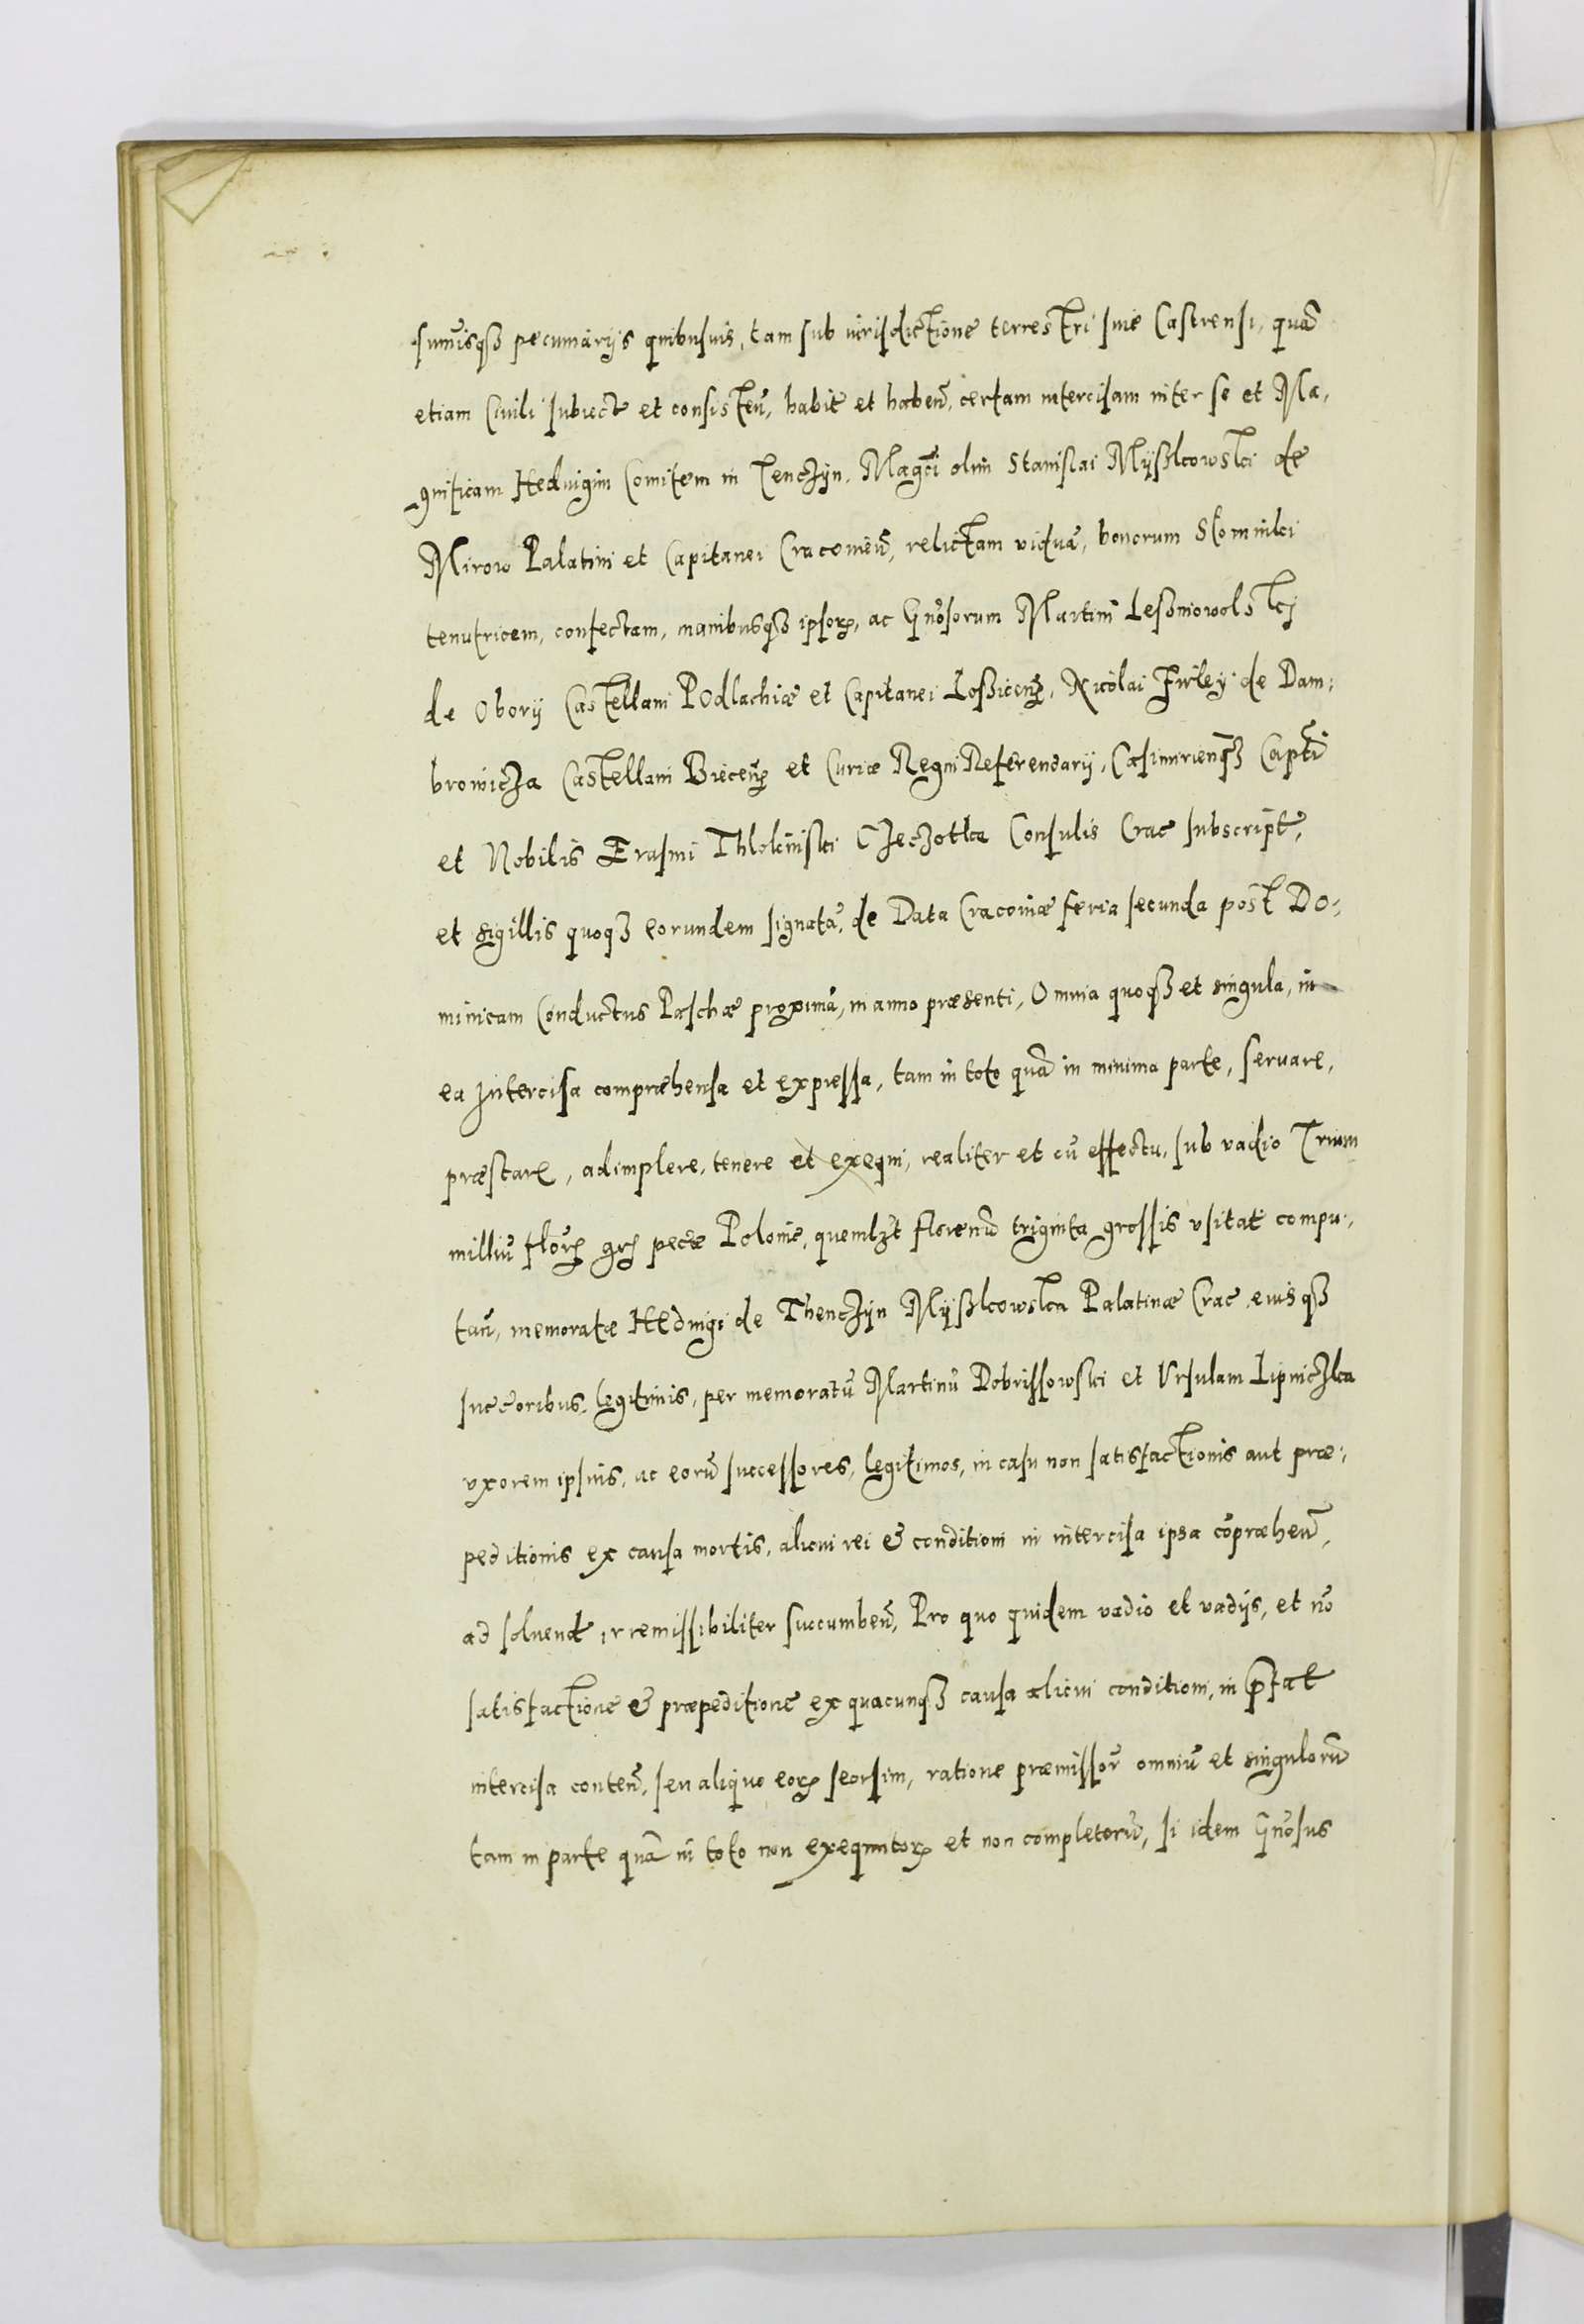 sum̃isqʒ pecuniarijs quibusuis, tam sub iurisdictione terrestri siue Castrensi, quã
etiam Ciuili subiect et consisteñ, habit et habeñ, certam intercisam inter se et Ma,
gnificam Heduigim Comitem in Tenczyn, Magci olim Stanislai Myßkowski de
Mirow Palatini et Capitanei Cracouieñ, relictam viduã, bonorum Slomniki
tenutricem, confectam, manibusqʒ ipsorꝝ, ac Gñosorum Martini Lesniowolskj
de Obory Castellani Podlachiæ et Capitanei Loßicenꝝ, Nicolai Firley de Dam:
browicza Castellani Biecenꝝ et Curiæ Regni Referendarij, Casimirienqʒ Capti
et Nobilis Erasmi Thlokinski Czeczotka Consulis Crac subscript,
et sigillis quoqʒ eorundem signatã, de Data Cracouiæ feria secunda post Do:,
minicam Conductus Paschæ proximã, in anno præsenti, Omnia quoqʒ et singula, in
ea Intercisa compræhensa et expressa, tam in toto quã in minima parte, seruare,
præstare, adimplere, tenere et exequi, realiter et cũ effectu, sub vadio Trium
milliũ florꝝ grꝫ pecũe Poloniē, quemlꝫt florenũ triginta grossis vsitati compu:,
tañ, memoratæ Hedvigi de Thenczyn Myßkowska Palatinæ Crac, eiusqʒ
succ̃oribus, legitimis, per memoratũ Martinũ Dobrissowski et Vrsulam Lipniczka
vxorem ipsius, ac eorũ successores, legitimos, in casu non satisfactionis aut præ:,
peditionis ex causa mortis, alicui rei & conditioni in intercisa ipsa cõpræheñ,
ad soluend irremissibiliter succumbeñ, Pro quo quidem vadio et vadijs, et nõ
satisfactione & præpeditione ex quacunqʒ causa alicui conditioni, in p̃fat
intercisa conteñ, seu aliquo eorꝝ seorsim, ratione præmissor omniũ et singulorũ
tam in parte quã in toto non exequutorꝝ et non completorũ, si idem Gñosus